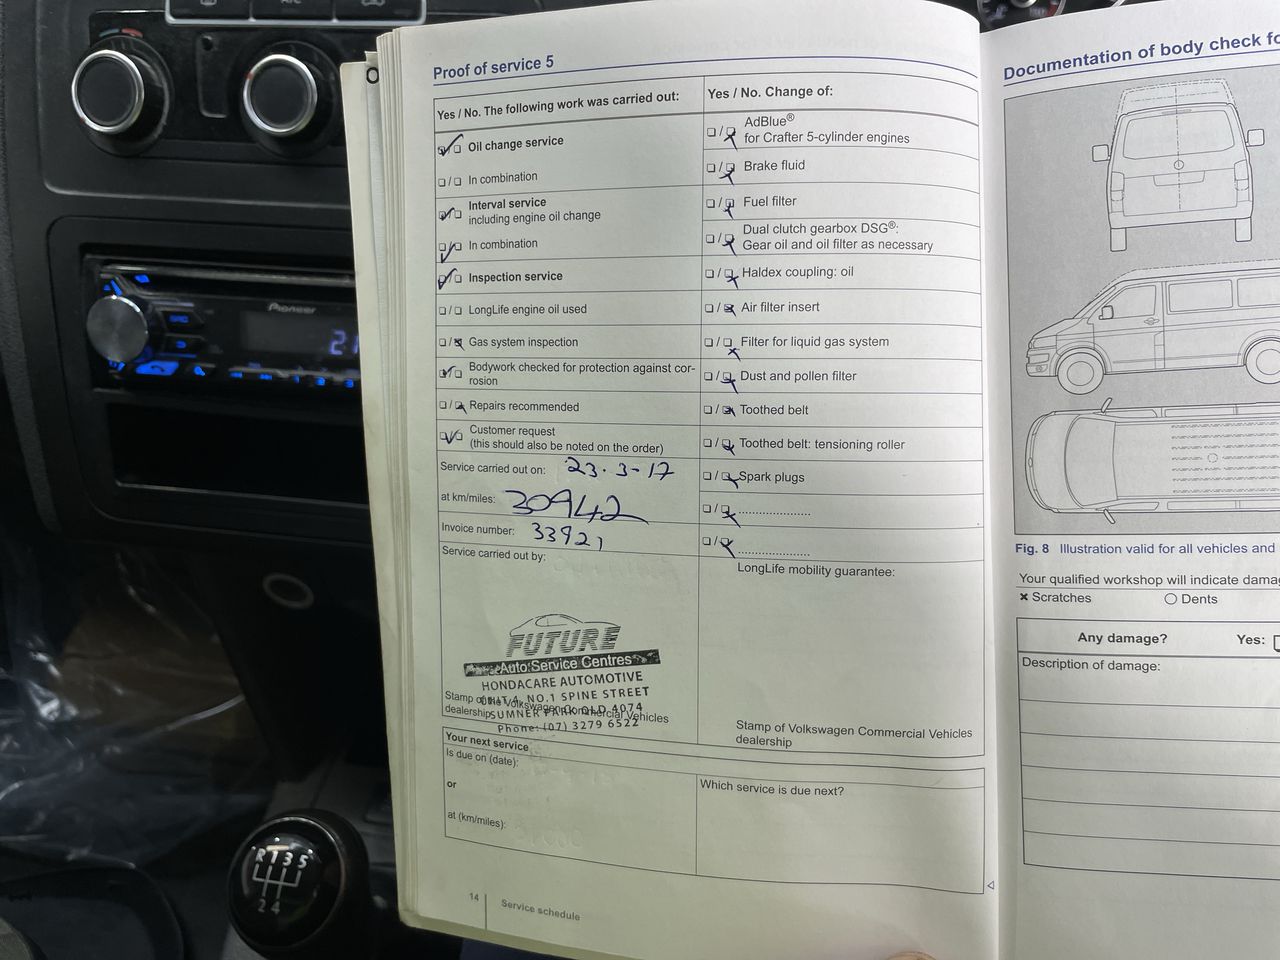 Proof of service 5
Yes / No. The following work was carried out:
Oil change service
In combination
Interval service
including engine oil change
In combination
Inspection service
LongLife engine oil used
Gas system inspection
Bodywork checked for protection against cor-
rosion
Repairs recommended
Customer request
(this should also be noted on the order)
Service carried out on: 23.3-17
at km/miles: 30942
Invoice number: 33921
Service carried out by:
FUTURE
Auto Service Centres
HONDACARE AUTOMOTIVE
UNIT 4, NO.1 SPINE STREET
SUMNER PARK QLD 4074
Phone: (07) 3279 6522
Stamp of the Volkswagen Commercial Vehicles
dealership
Yes / No. Change of:
AdBlue®
for Crafter 5-cylinder engines
Brake fluid
Fuel filter
Dual clutch gearbox DSG®:
Gear oil and oil filter as necessary
Haldex coupling: oil
Air filter insert
Filter for liquid gas system
Dust and pollen filter
Toothed belt
Toothed belt: tensioning roller
Spark plugs
LongLife mobility guarantee:
Stamp of Volkswagen Commercial Vehicles
dealership
Your next service
Is due on (date):
or
at (km/miles):
Which service is due next?
14 Service schedule
Documentation of body check fo
Fig. 8 Illustration valid for all vehicles and
Your qualified workshop will indicate dama
Scratches Dents
Any damage? Yes:
Description of damage:
Pioneer
SRC
21
1 2 3
R 1 3 5
2 4